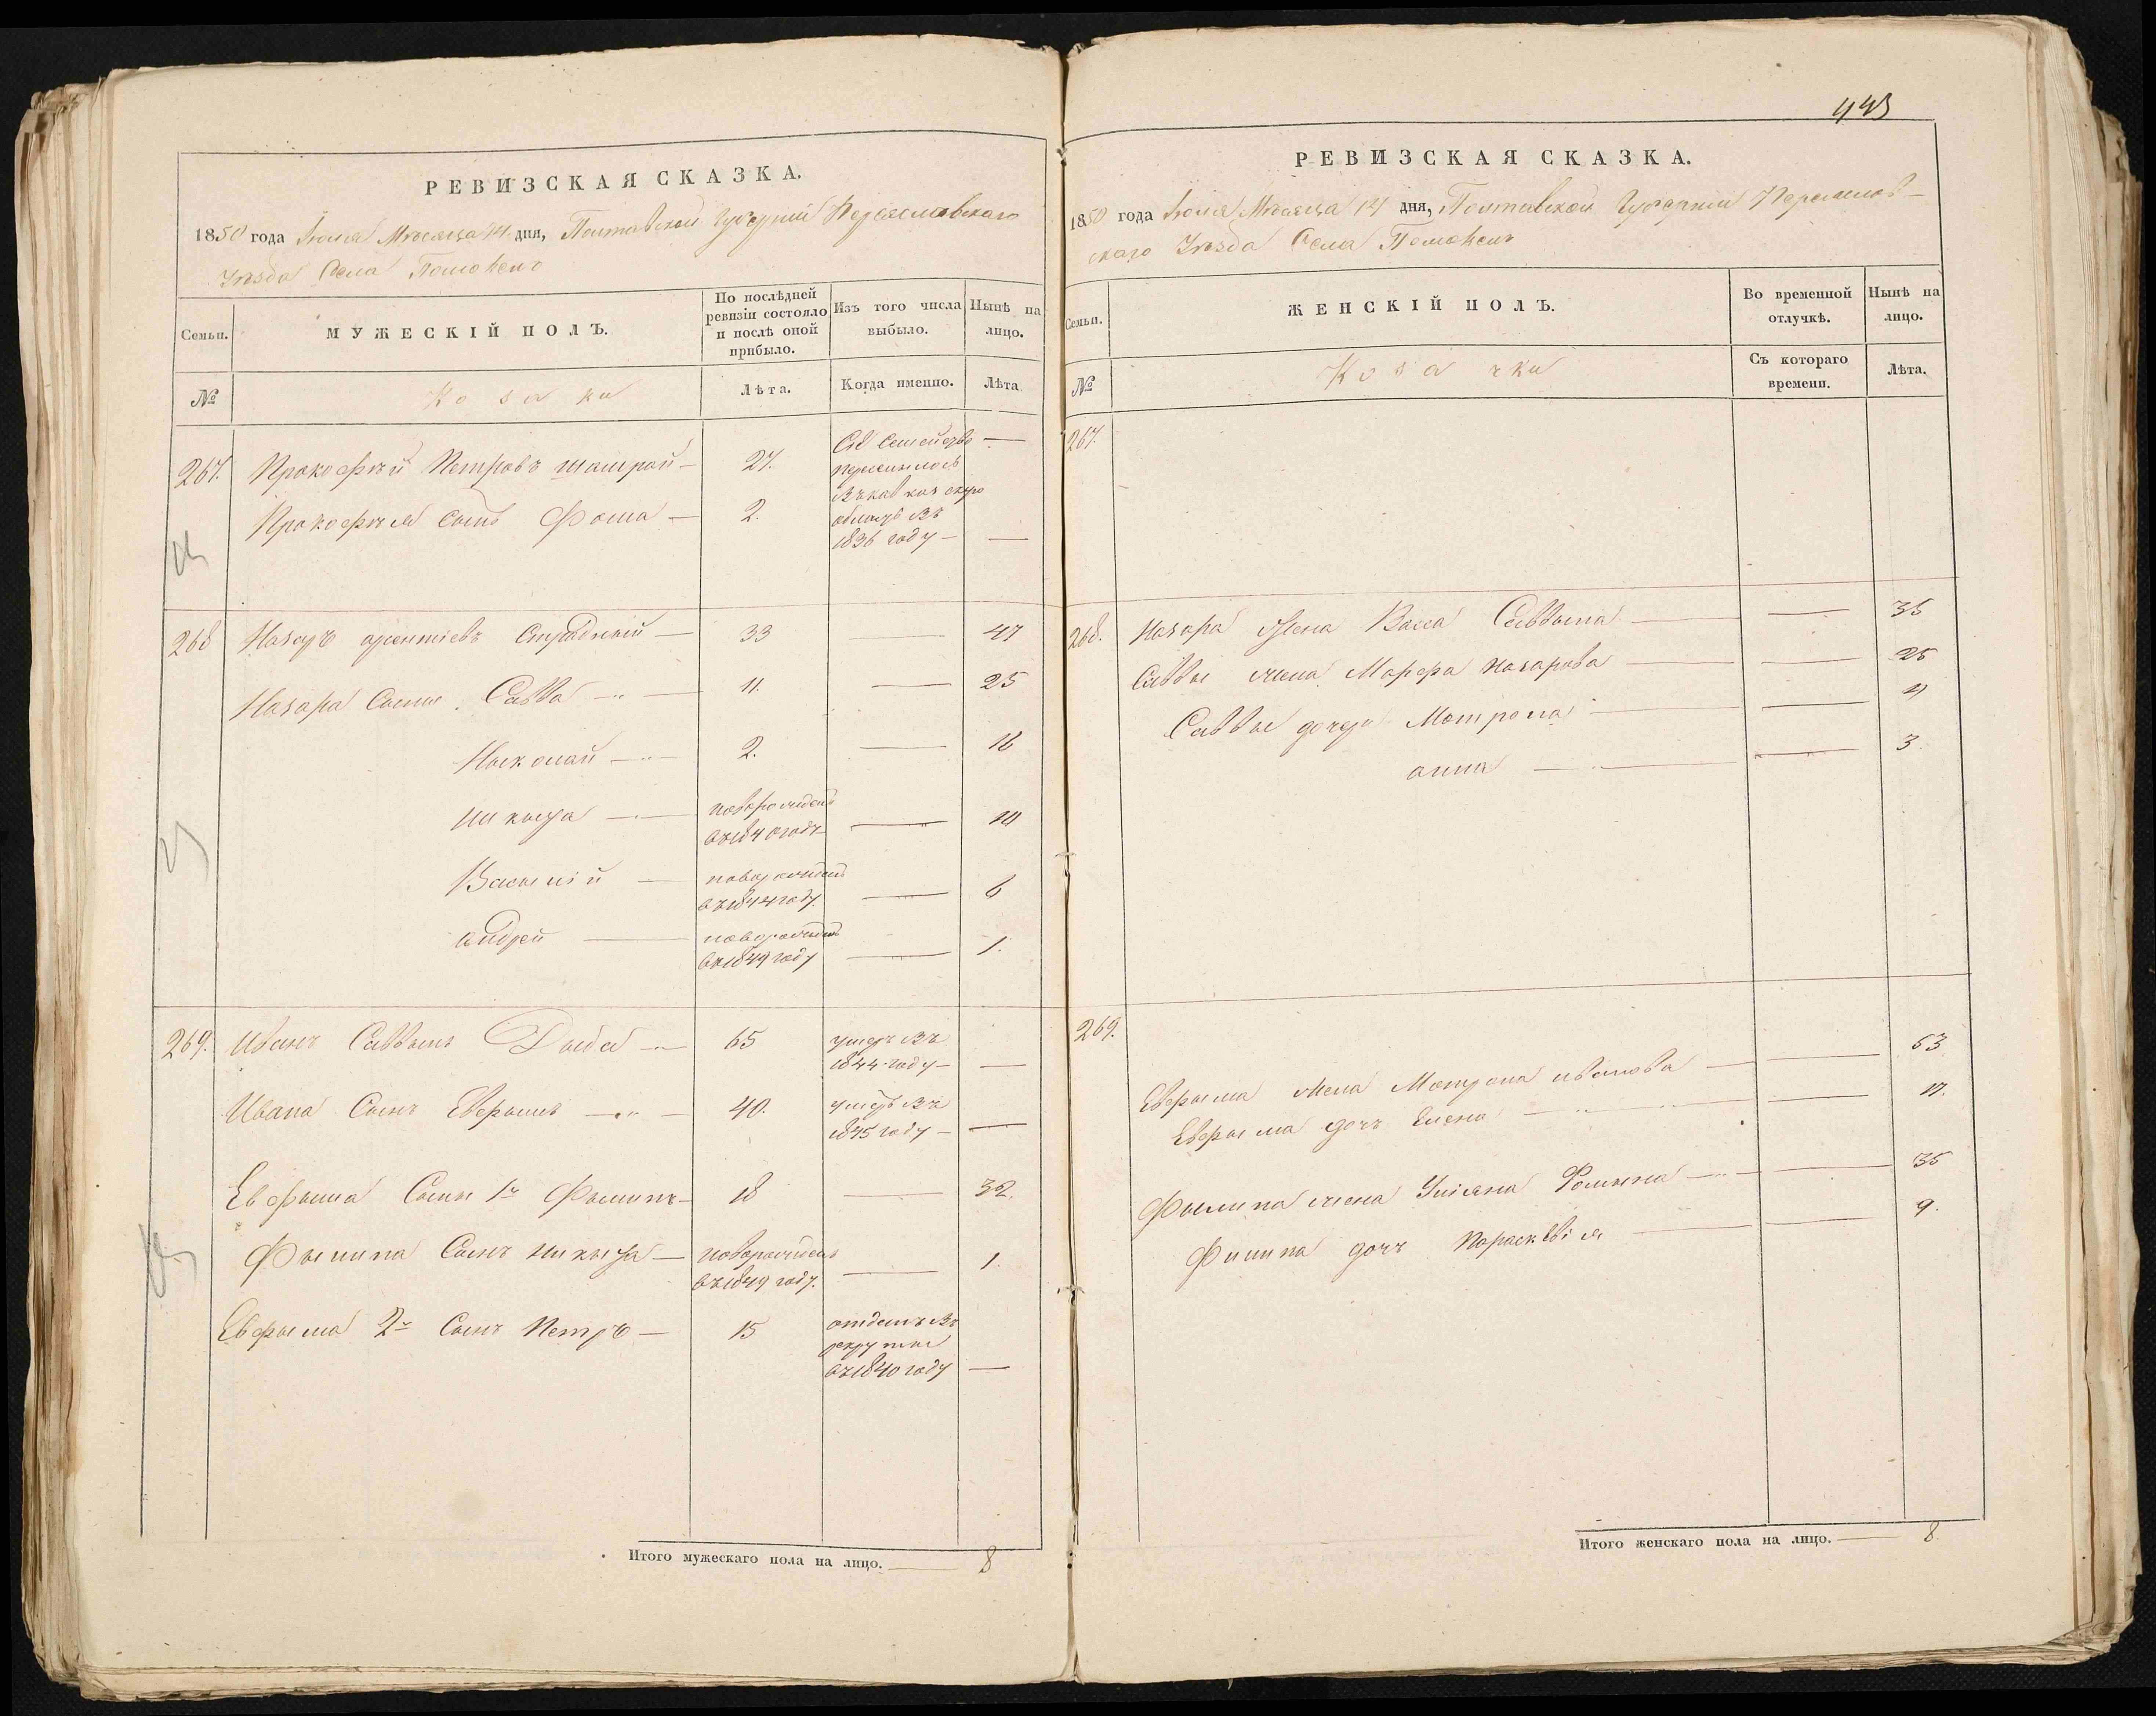 443
РЕВИЗСКАЯ СКАЗКА.
1850 года Июля Мѣсяца 14 дня, Полтавской Губерніи Переяславскаго
Уѣзда Села Помоклеъ
Семьи.
МУЖЕСКІЙ ПОЛЪ.
По послѣдней ревизіи состояло и послѣ оной прибыло.
Изъ того числа выбыло.
Нынѣ на лицо.
№
Козаки
Лѣта.
Когда именно.
Лѣта
267. Прокофѣй Петровъ 27. Съ семействомъ —
переселилось
Прокофѣя сынъ Фома — 2. въ
область въ
1836 году — —
268 Назаръ Страдный — 33 — 47
Назара сыны Савва — 11. — 25
Николай — 2. — 16
Никита — новорожденъ
въ 1840 годѣ — 10
Василій — новорожденъ
въ 1844 году. — 6
Андрей — новорожденъ
въ 1849 году — 1.
269. Иванъ Саввинъ Дыба — 65 умеръ въ
1844 году — —
Ивана сынъ Евфымъ — 40. умеръ въ
1845 году — —
Евфыма сыны 1й Фылипъ — 18 — 32.
Фылипа сынъ Никита — новорожденъ
въ 1849 году. — 1.
Евфыма 2й сынъ Петръ — 15 отданъ въ
рекруты
въ 1840 году —
Итого мужескаго пола на лицо. — 8
РЕВИЗСКАЯ СКАЗКА.
1850 года Июля Мѣсяца 14 дня, Полтавской Губерніи Переяслав-
скаго Уѣзда Села
Семьи.
ЖЕНСКІЙ ПОЛЪ.
Во временной отлучкѣ.
Нынѣ на лицо.
№
Козачки
Съ котораго времени.
Лѣта.
267.
268. Назара жена Васса Саввина — — 35
Саввы жена Марфа Назарова — — 25
Саввы дочери Мотрона — —
анна — — 3.
269.
Евфыма жена Мотрона Иванова — — 53
Евфыма дочь Елена — — 17.
Фылипа жена Уліяна Фомина — — 35
Филипа дочь Параскевія — — 9.
Итого женскаго пола на лицо. — 8